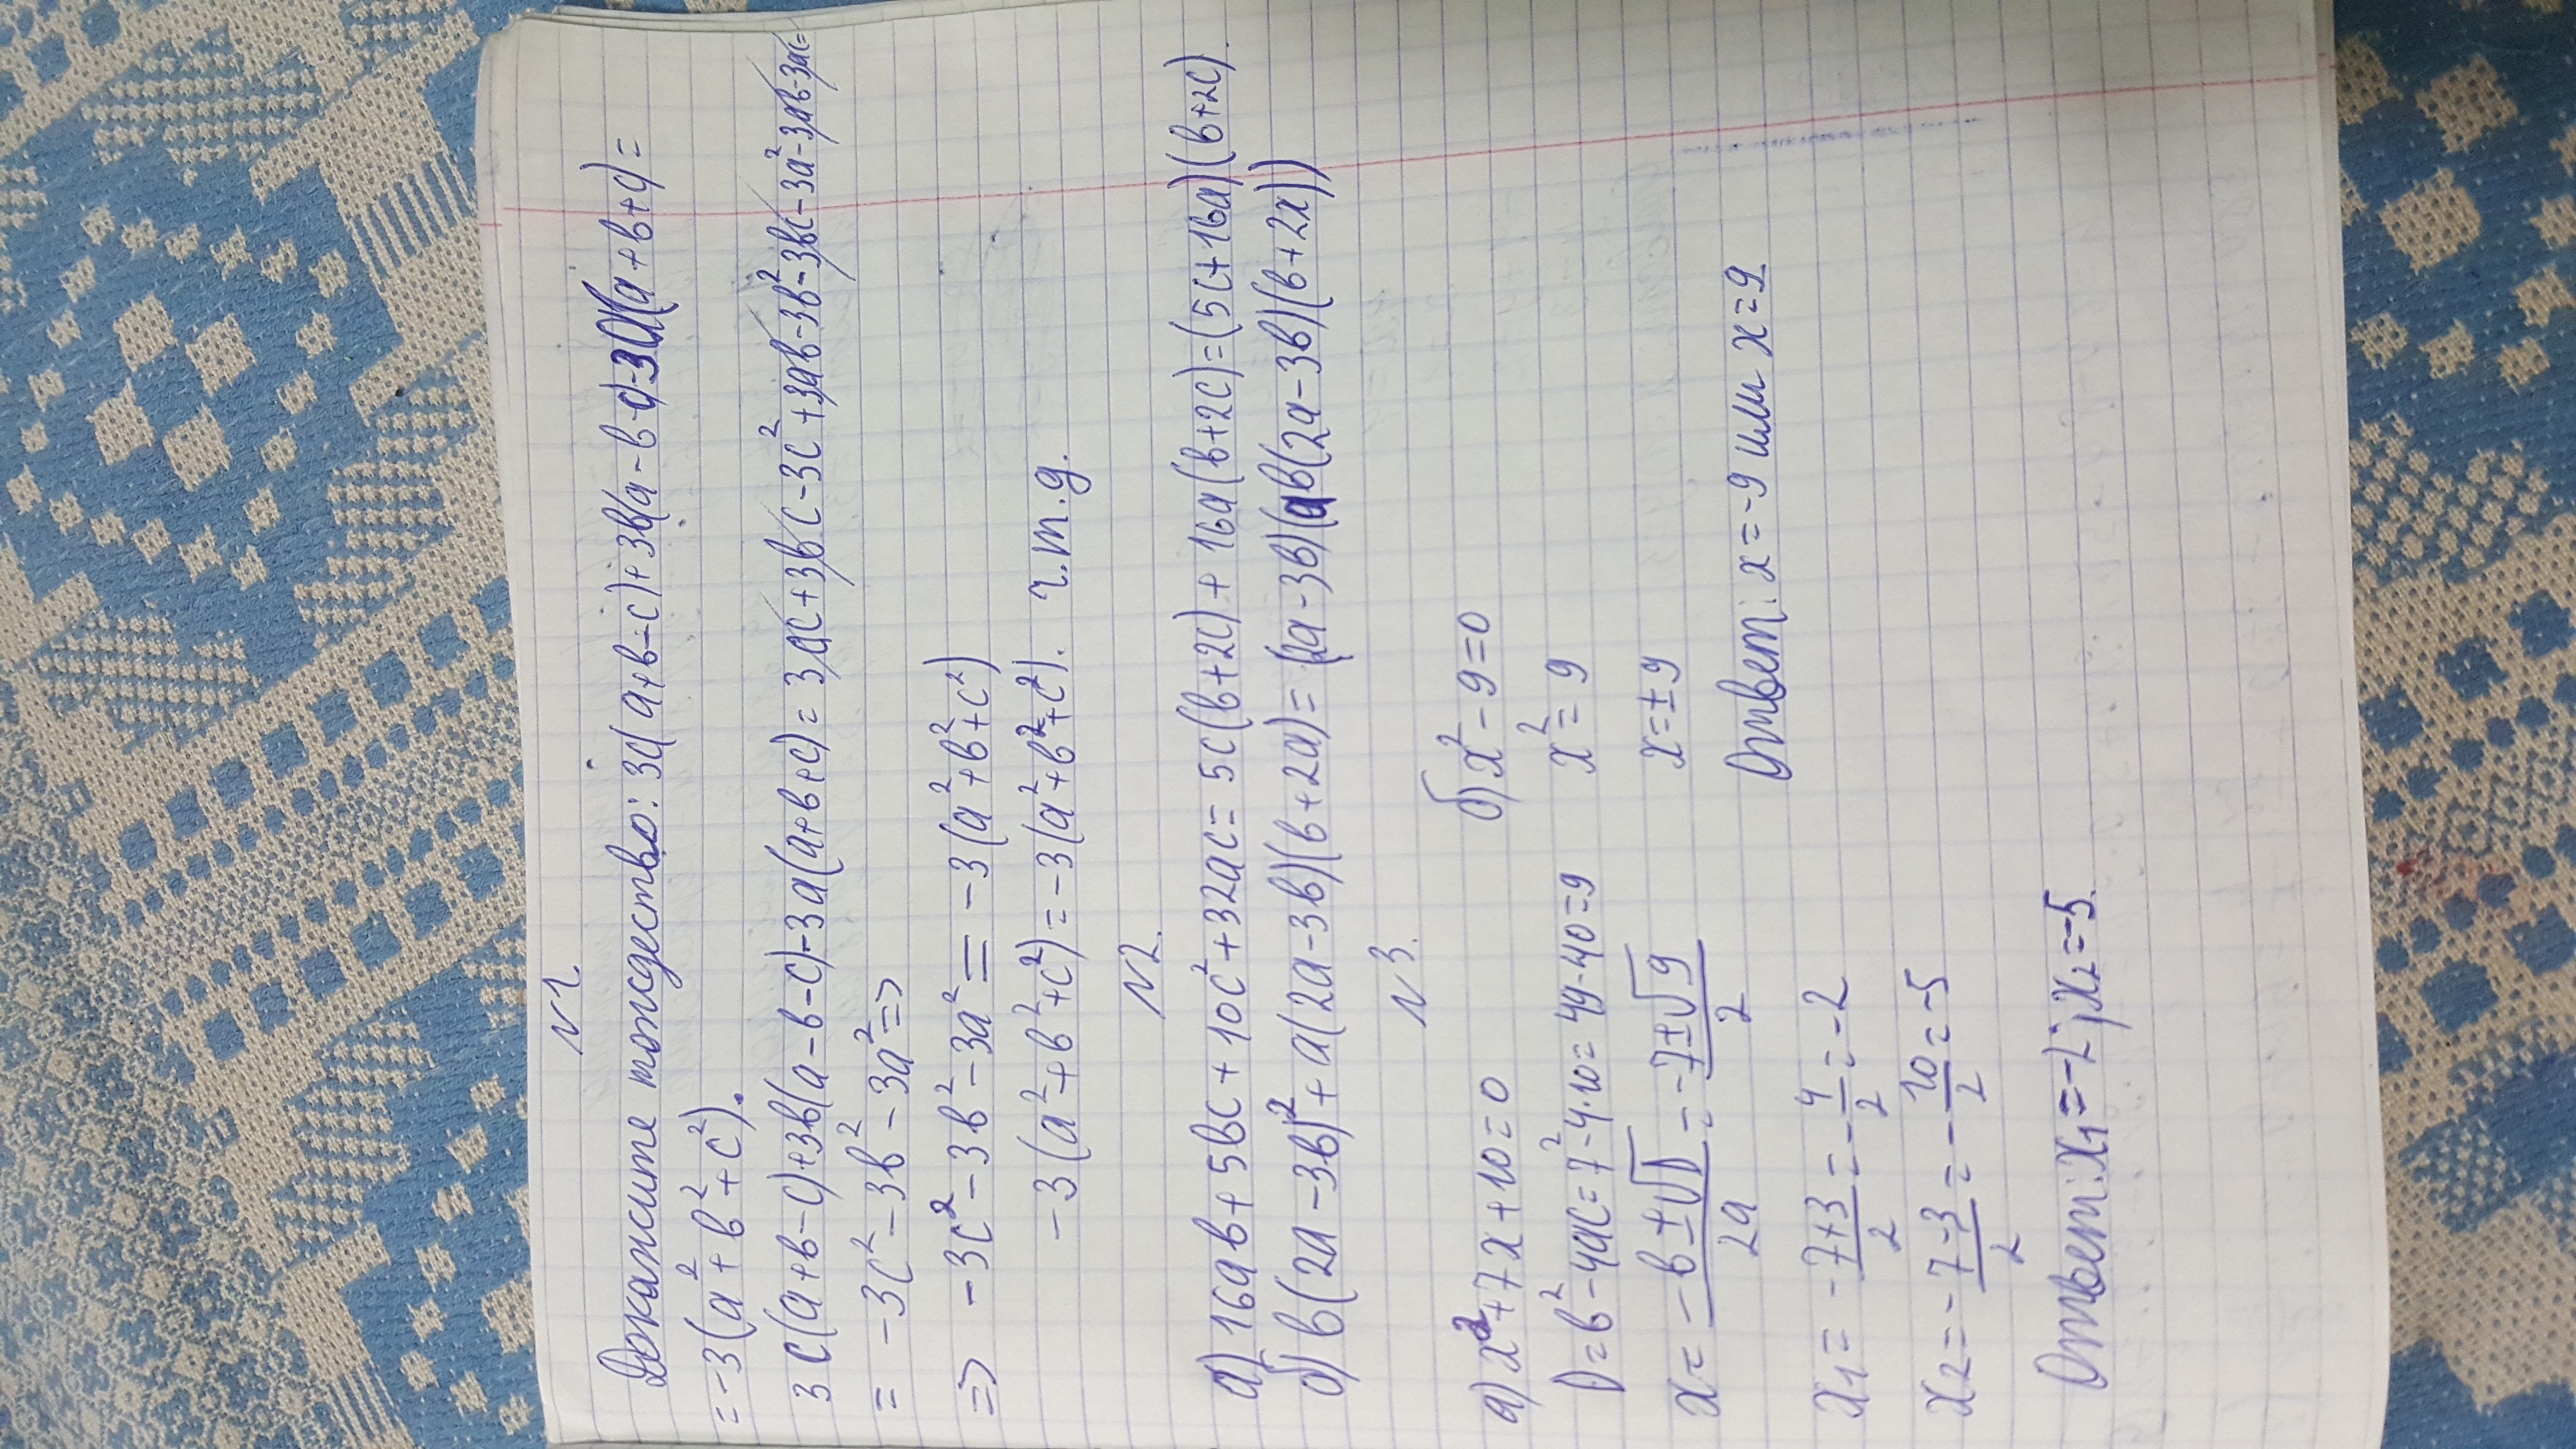 №1.
Докажите тождество: 3c(a+b-c)+3b(a-b-c)-3a(a+b+c)=
=-3(a²+b²+c²).
3c(a+b-c)+3b(a-b-c)-3a(a+b+c)=3ac+3bc-3c²+3ab-3b²-3bc-3a²-3ab-3ac=
=-3c²-3b²-3a²=>
=> -3c²-3b²-3a²=-3(a²+b²+c²)
-3(a²+b²+c²)=-3(a²+b²+c²). ч.т.д.
№2.
а) 16ab+5bc+10c²+32ac=5c(b+2c)+16a(b+2c)=(5c+16a)(b+2c).
б) b(2a-3b)²+a(2a-3b)(b+2a)=(2a-3b)(ab(2a-3b)(b+2x))
№3.
а) x²+7x+10=0
D=b²-4ac=7²-4·10=49-40=9
x=-b±√D/2a=-7±√9/2
x₁=-7+3/2=-4/2=-2
x₂=-7-3/2=-10/2=-5
Ответ: x₁=-2; x₂=-5.
б) x²-9=0
x²=9
x=±9
Ответ: x=-9 или x=9